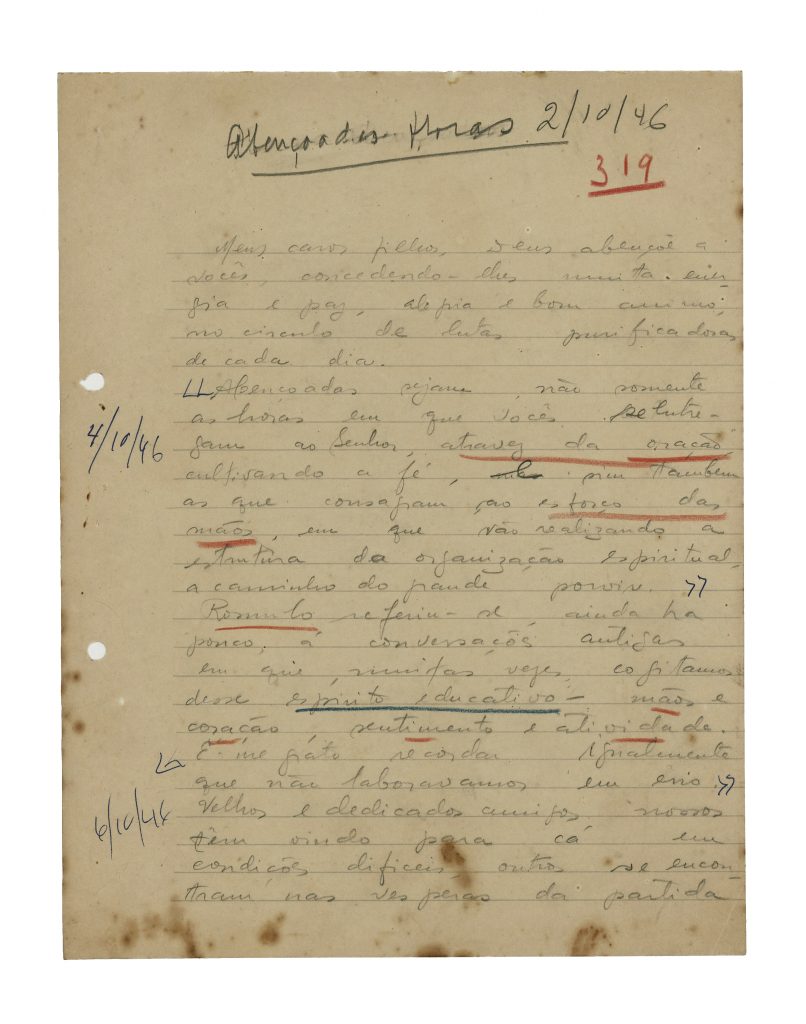 Abençoadas Horas 2/10/46
319
Meus caros filhos, Deus abençôe a
vocês, concedendo-lhes muita ener-
gia e paz, alegria e bom animo,
no circulo de lutas purificadoras
de cada dia.
Abençoadas sejam, não somente
as horas em que vocês se entre-
4/10/46
gam ao Senhor, atravez da oração,
cultivando a fé, sim tambem
as que consagram ao esforço das
mãos, em que vão realizando a
estrutura da organização espiritual,
a caminho do grande porvir. "
Romulo referiu-se, ainda ha
pouco, á conversações antigas
em que, muitas vezes, cogitamos
desse espirito educativo - mãos e
coração, sentimento e atividade.
É-me gráto recordar igualmente
que não laboravamos em erro. "
6/10/46
Velhos e dedicados amigos nossos
têm vindo para cá em
condições dificeis, outros se encon-
tram nas vesperas da partida